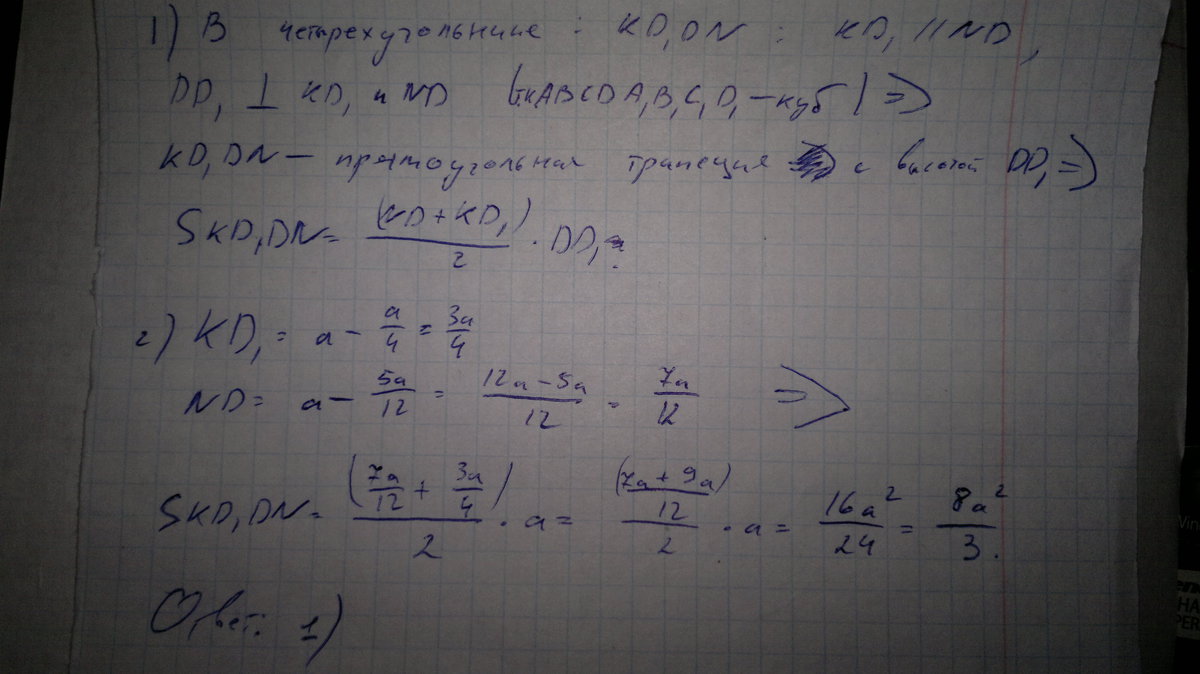 1) В четырехугольнике : KD₁DN : KD₁ // ND,
DD₁ ⊥ KD₁ и ND (т.к ABCDA₁B₁C₁D₁ – куб) =>
KD₁DN – прямоугольная трапеция с высотой DD₁ =>
SKD₁DN = (ND + KD₁)/2 · DD₁
2) KD₁ = a - a/4 = 3a/4
ND = a - 5a/12 = (12a - 5a)/12 = 7a/12 =>
SKD₁DN = (7a/12 + 3a/4)/2 · a = ((7a + 9a)/12)/2 · a = 16a²/24 = 8a²/3.
Ответ: 1)